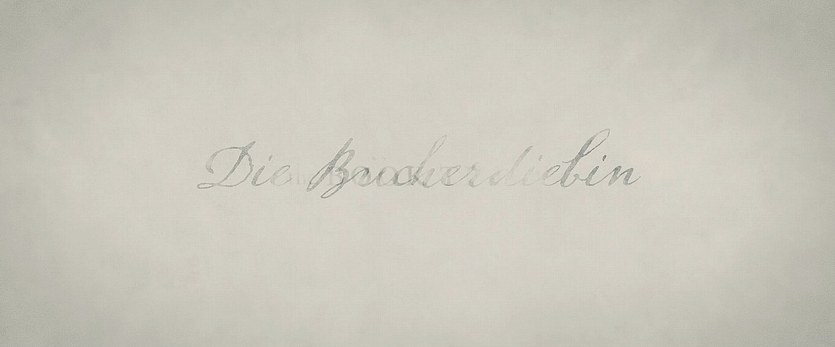 Die Bücherdiebin